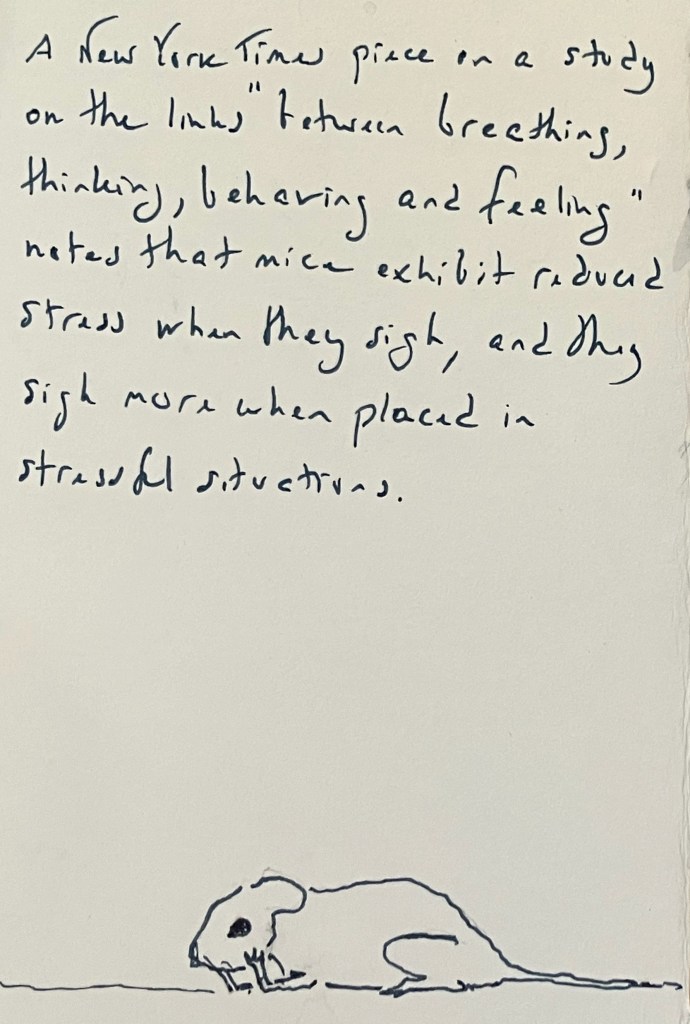 A New York Times piece on a study
on the links "between breathing,
thinking, behaving and feeling"
notes that mice exhibit reduced
stress when they sigh, and they
sigh more when placed in
stressful situations.